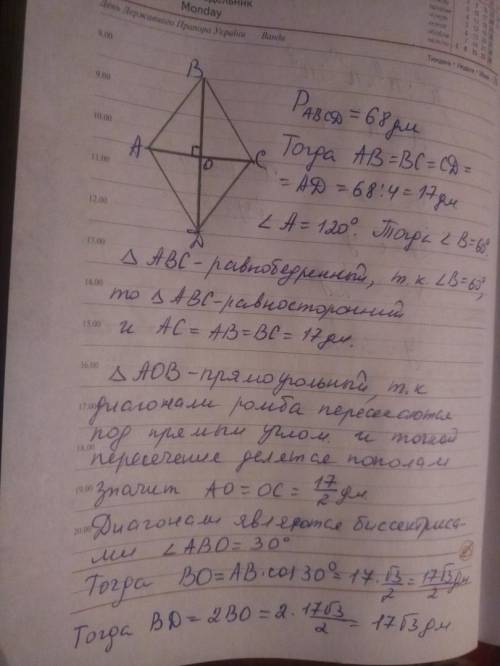 Monday
День Державного Прапора України
8.00
9.00
10.00
11.00
12.00
13.00
14.00
15.00
16.00
17.00
18.00
19.00
20.00
B
A
O
C
D
P ABCD = 68 дм
Тогда AB=BC=CD=
=AD=68:4=17дм
∠A=120°. Тогда ∠B=60°.
△ ABC-равнобедренный, т.к ∠B=60°,
то △ABC-равносторонний
и AC=AB=BC=17дм.
△ AOB-прямоугольный, т.к
диагонали ромба пересекаются
под прямым углом и точкой
пересечение делятся пополам
значит AO=OC=17/2 дм
Диагонали являются биссектриса-
ми ∠ABO=30°
Тогда BO=AB·cos30°=17·√3/2=17√3/2 дм
Тогда BD=2BO=2·17√3/2=17√3 дм